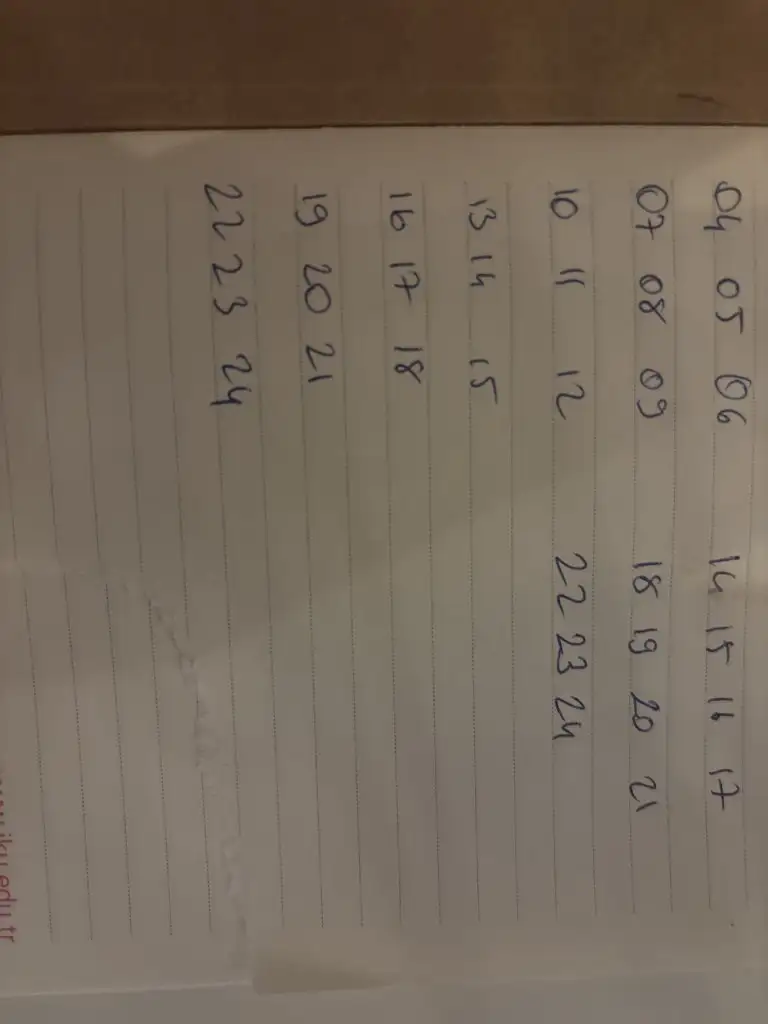 04 05 06 14 15 16 17
07 08 09 18 19 20 21
10 11 12 22 23 24
13 14 15
16 17 18
19 20 21
22 23 24
.iku.edu.tr